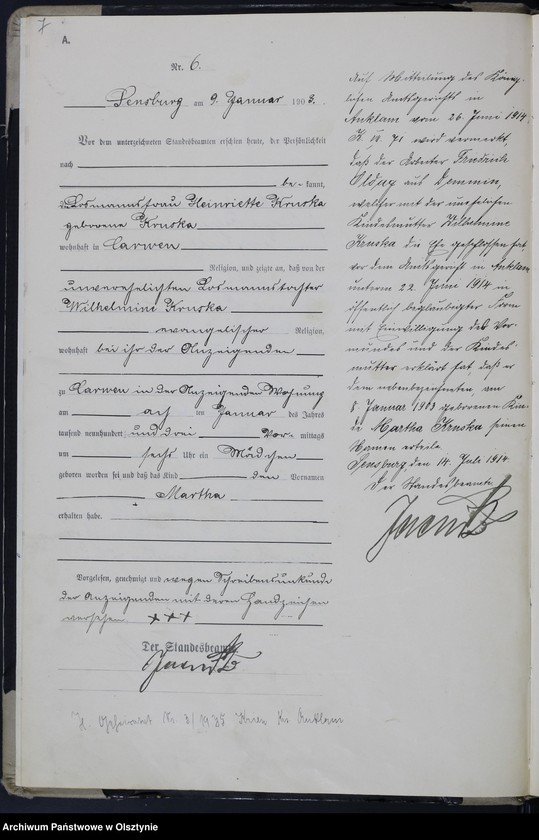 7
A.
Nr. 6.
Sensburg am 9. Januar 1903.
Vor dem unterzeichneten Standesbeamten erschien heute, der Persönlichkeit
nach
be-kannt,
die Losmannsfrau Heinriette Kruska
geborene Kruska
wohnhaft in Carwen
Religion, und zeigte an, daß von der
unverehelichten Losmannstochter
Wilhelmine Kruska
evangelischer Religion,
wohnhaft bei ihr der Anzeigenden
zu Carwen in der Anzeigenden Wohnung
am acht ten Januar des Jahres
tausend neunhundert und drei Vor- mittags
um sechs Uhr ein Mädchen
geboren worden sei und daß das Kind den Vornamen
Martha
erhalten habe.
Vorgelesen, genehmigt und wegen Schreibensunkunde
der Anzeigenden mit deren Handzeichen
versehen. +++
Der Standesbeamte
Auf Mitteilung des König-
lichen Amtsgerichts in
Anklam vom 26. Juni 1914
71 wird vermerkt,
daß der Arbeiter Friedrich
aus Demmin,
welcher mit der unehelichen
Kindesmutter Wilhelmine
Kruska die Ehe geschlossen hat,
vor dem Amtsgericht in Anklam
unterm 22. Juni 1914 in
öffentlich beglaubigter Form
mit Einwilligung des Vor-
mundes und der Kindes-
mutter erklärt hat, daß er
dem nebenbezeichneten, am
8. Januar 1903 geborenen Kin-
de Martha Kruska seinen
Namen erteile.
Sensburg den 14. Juli 1914.
Der Standesbeamte
Nr. 3/1925 Anklam
Archiwum Państwowe w Olsztynie